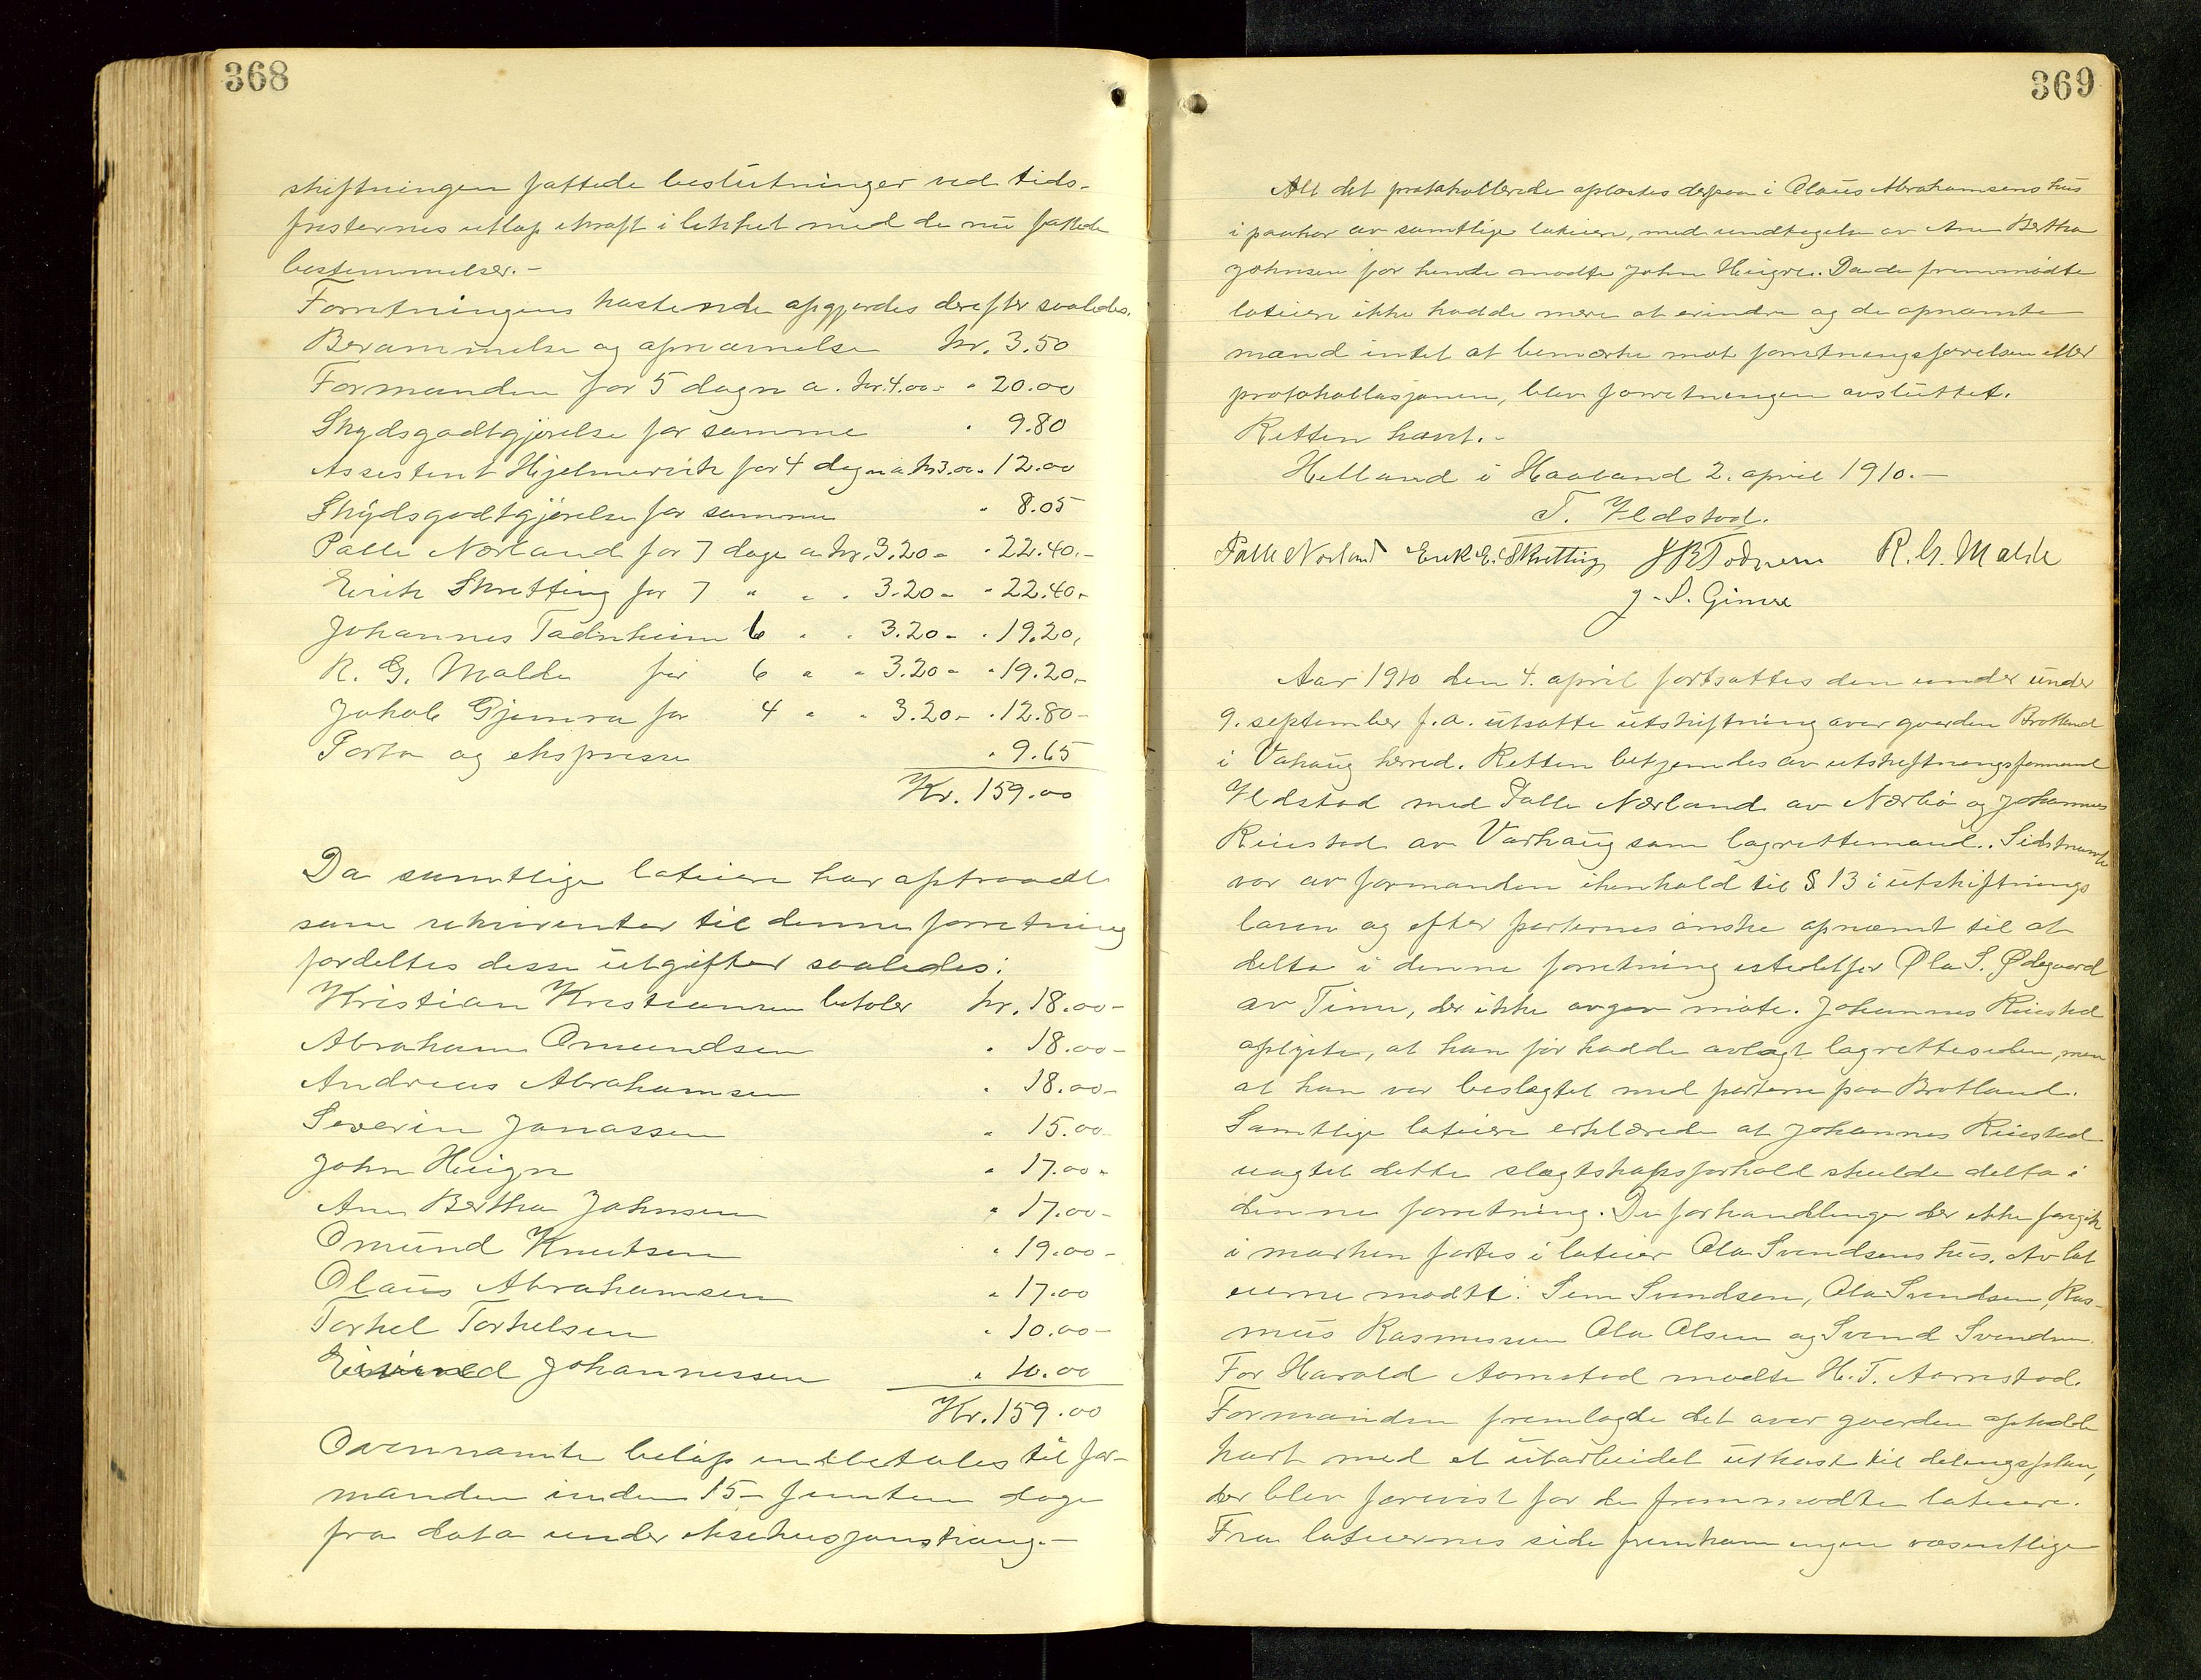 368
skiftningen fattede beslutninger ved tids-
fristernes utløp ikraft i likhet med de nu fattede
bestemmelser.-
Forretningens kostende opgjordes derefter saaledes.
Berammelse og opnævnelse kr. 3.50
Formanden for 5 dage a. kr. 4.00- " 20.00
Skydsgodtgjørelse for samme " 9.80
Assistent Hjelmervik for 4 dage a kr 3.00 - 12.00
Skydsgodtgjørelse for samme " 8.05
Palle Nærland for 7 dage a kr. 3.20 - " 22.40.-
Eirik Skretting for 7 " " " 3.20 - " 22.40.-
Johannes Todnheim 6 " " 3.20 - " 19.20,
R. G. Malde for 6 " " 3.20 - " 19.20.-
Jakob Gjemra for 4 " " 3.20 - " 12.80 -
Porto og ekspresse " 9.65
Kr. 159.00
Da samtlige loteiere har optraadt
som rekvirenter til denne forretning
fordeltes disse utgifter saaledes:
Kristian Kristiansen betaler kr. 18.00-
Abraham Omundsen " 18.00-
Andreas Abrahamsen " 18.00-
Severin Jonassen " 15.00-
John Huign " 17.00-
Ane Bertha Johnsen " 17.00-
Omund Knutsen " 19.00-
Olaus Abrahamsen " 17.00
Torkel Torkelsen " 10.00-
Eivind Johannessen " 10.00
Kr. 159.00
Ovennævnte beløp indbetales til for-
manden inden 15- femten dage
fra dato under eksekusjonstvang.-
369
Alt det protokollerede oplæstes derpaa i Olaus Abrahamsens hus
i paahør av samtlige loteiere, med undtagelse av Ane Bertha
Johnsen for hende mødte John Huigre. Da de fremmødte
loteiere ikke hadde mere at erindre og de opnævnte
mænd intet at bemerke mot forretningsførelsen eller
protokollasjonen, blev forretningen avsluttet.
Retten hævet.-
Helland i Haaland 2. april 1910.-
T. Ueldstad.
Palle Nærland Eirik E. Skretting J B Todneim R. G. Malde
J. S. Gimre
Aar 1910 den 4. april fortsattes den under under
9. september f.a. utsatte utskiftning over gaarden Brotland
i Vahaug herred. Retten betjendes av utskiftningsformand
Ueldstad med Palle Nærland av Nærbø og Johannes
Reiestad av Varhaug som lagrettemænd. Sidstnævnte
var av formanden ihenhold til § 13 i utskiftnings
loven og efter parternes ønske opnævnt til at
delta i denne forretning istedetfor Ola S. Ødegaard
av Time, der ikke avgav møte. Johannes Reiestad
oplyste, at han før hadde avlagt lagretteseden, men
at han var beslegtet med parterne paa Brotland.
Samtlige loteiere erklærede at Johannes Reiestad
uagtet dette slegtskapsforhold skulde delta i
denne forretning. De forhandlinger der ikke foregik
i marken førtes i loteier Ola Svendsens hus. Av lot
eierne mødte: Sem Svendsen, Ola Svendsen, Ras-
mus Rasmussen Ola Olsen og Svend Svendsen.
For Harald Aarrestad mødte H. T. Aarrestad.
Formanden fremlagde det over gaarden optatte
kart med et utarbeidet utkast til delingsplan,
der blev forevist for de fremmødte loteiere.
Fra loteiernes side fremkom ingen væsentlige